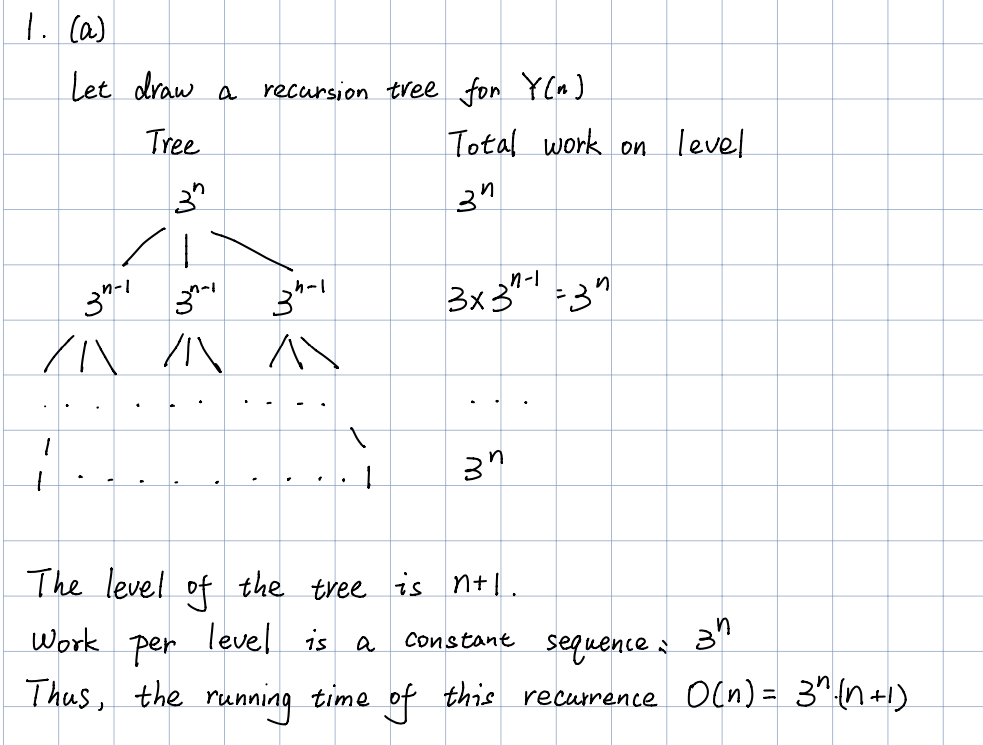 1. (a)
Let draw a recursion tree for Y(n)
Tree Total work on level
3^n 3^n
3^{n-1} 3^{n-1} 3^{n-1} 3×3^{n-1} = 3^n
. . . . . . . . . . . . .
1 . . . . . . . . . . 1 3^n
The level of the tree is n+1.
Work per level is a constant sequence: 3^n
Thus, the running time of this recurrence O(n) = 3^n·(n+1)